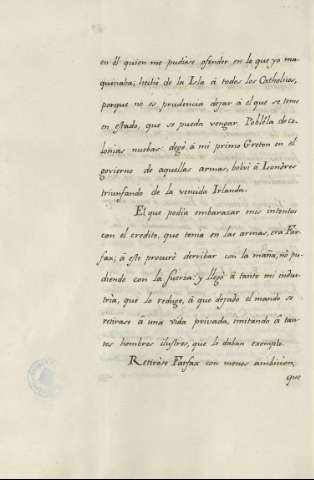 en èl quien me pudiese ofender en lo que yo ma
quinaba; hechè de la Isla à todos los Catholicos,
porque no es prudencia dejar à el que se teme
en estado, que se pueda vengar. Poblèla de co
lonias nuebas dejè à mi primo Greton en el
govierno de aquellas armas, bolvi à Londres
triunfando de la vencida Irlanda.
El que podia embarazar mis intentos
con el credito, que tenia en las armas, era Far
fax; à este procurè derribar con la maña, no pu
diendo con la fuerza: y llegò à tanto mi indus
tria, que lo reduge, à que dejado el mando se
retirase à una vida privada, imitando à tan
tos hombres ilustres, que le daban exemplo.
Retiròse Farfax con menos ambicion,
que